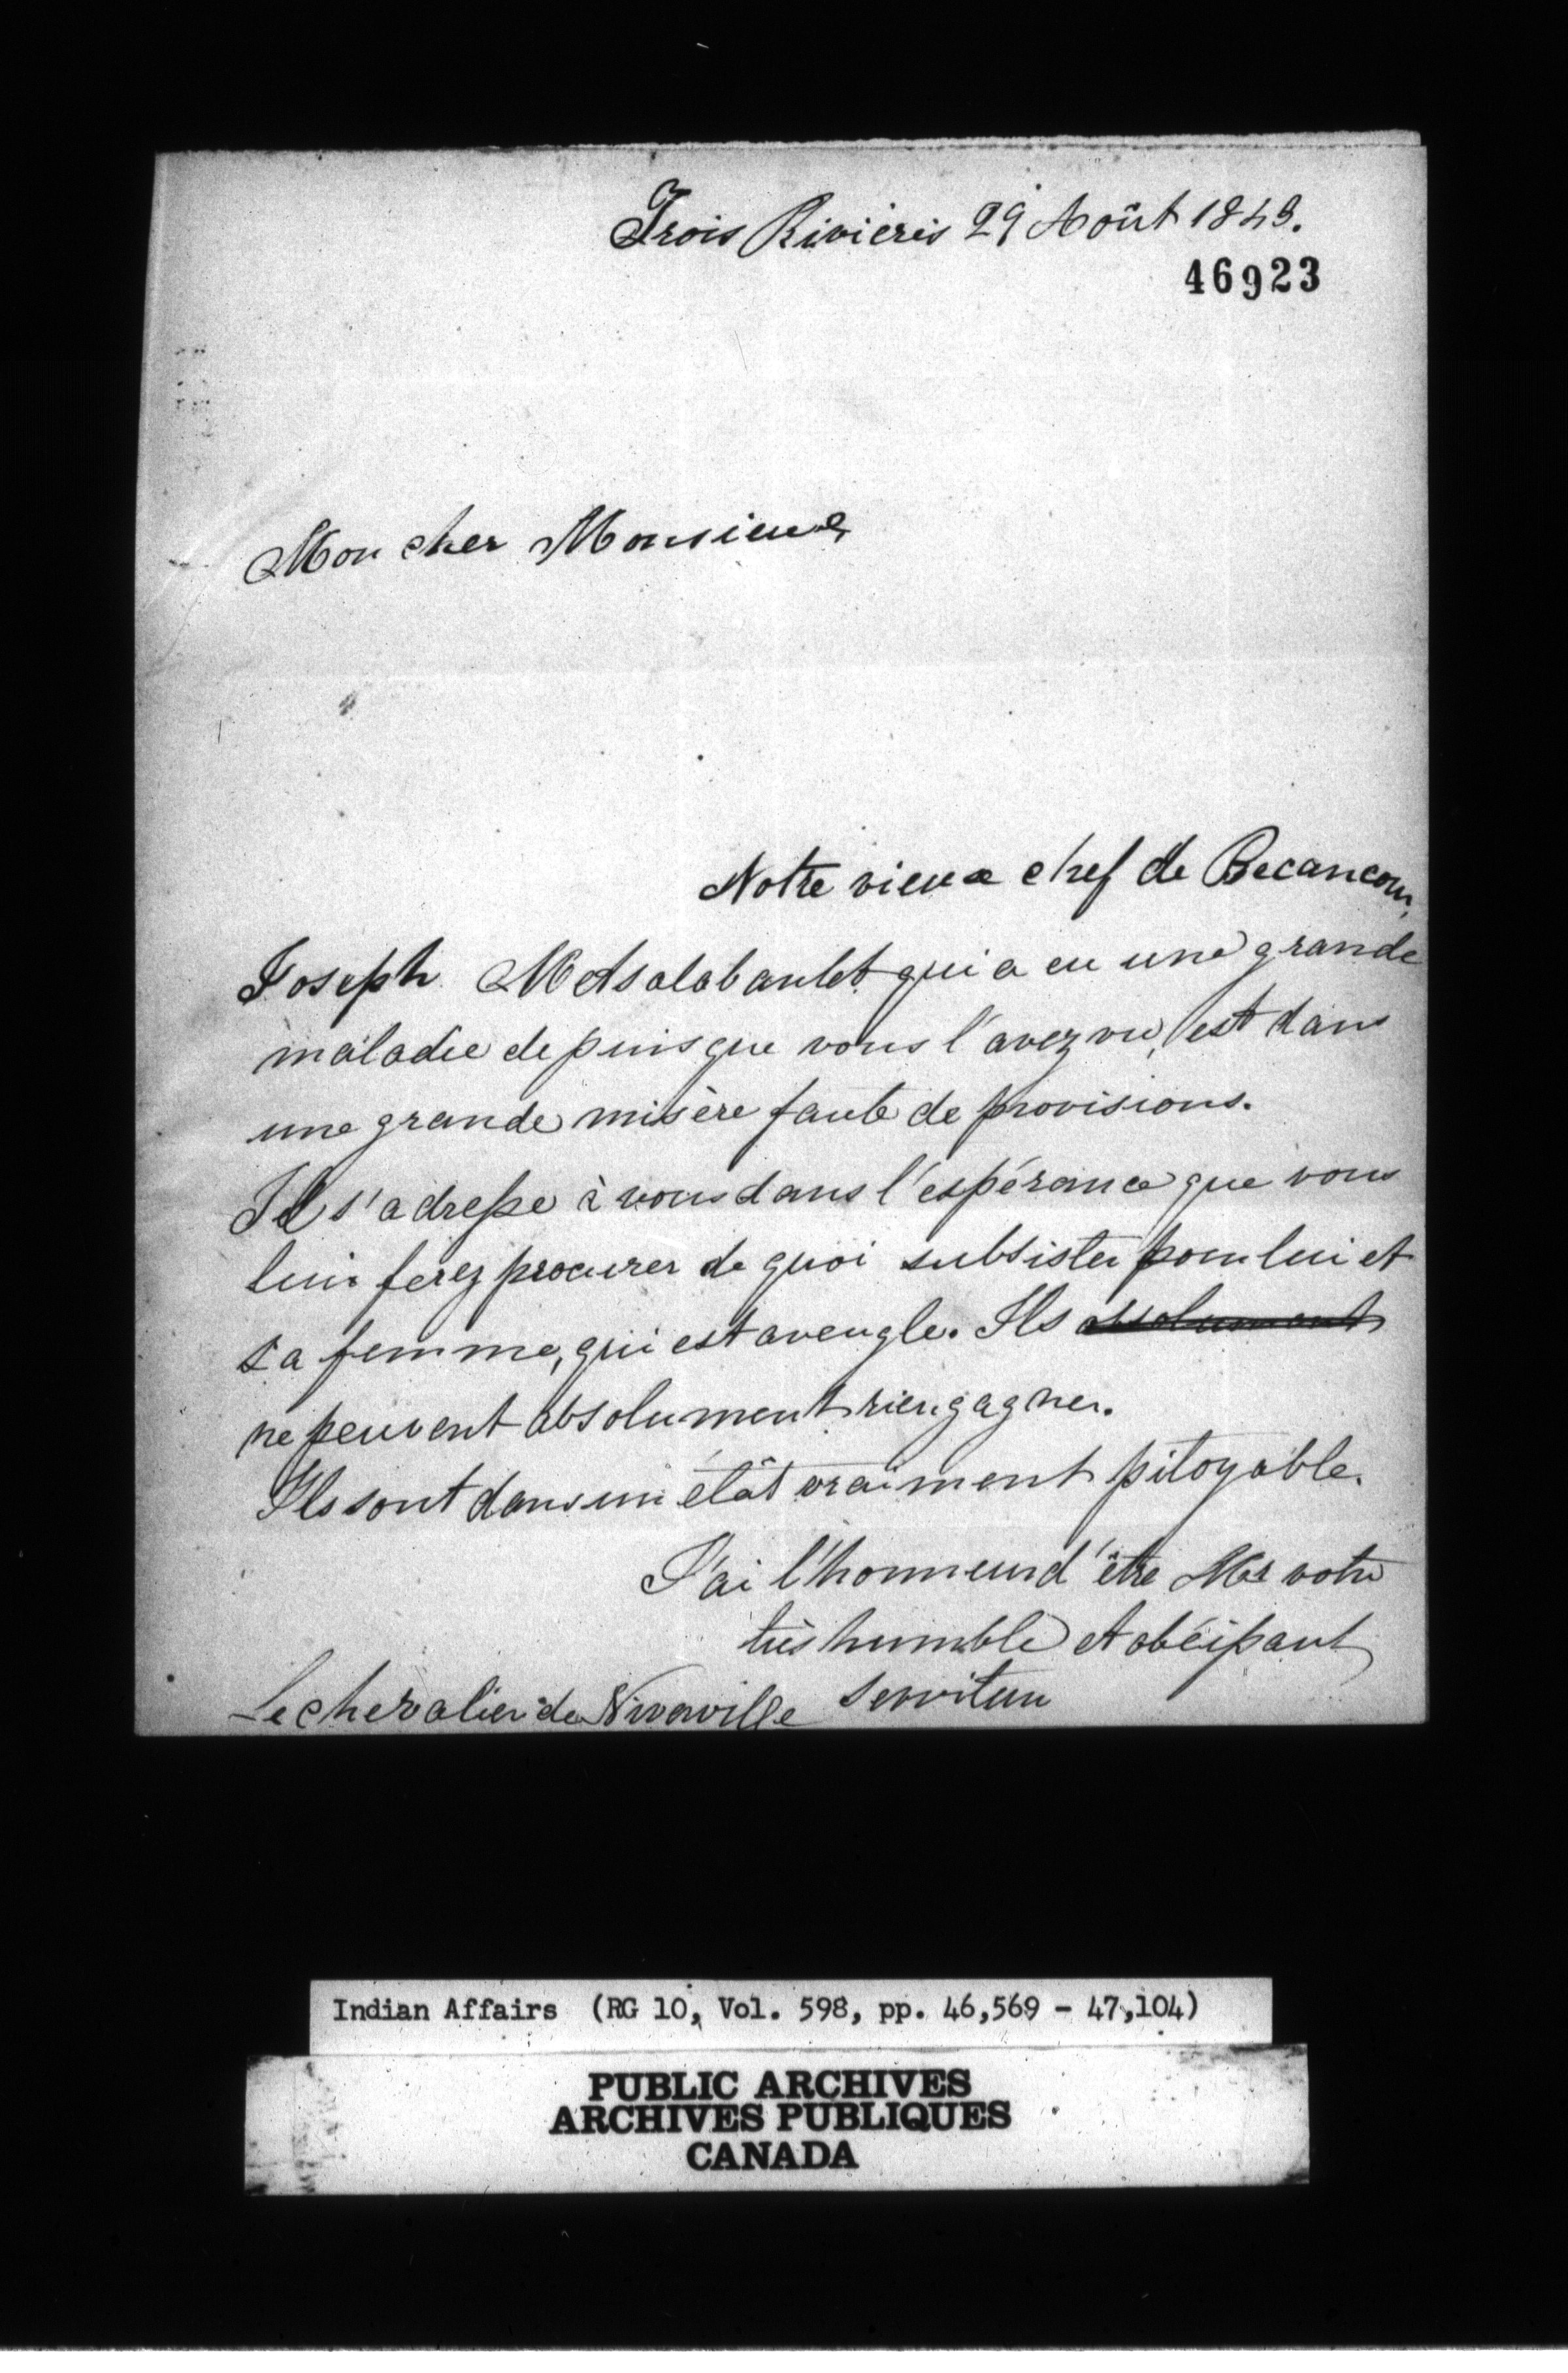 Trois Rivieres 29 Août 1843.
46923
Mon cher Monsieur
Notre vieux chef de Becancour,
Joseph Metsalabanlet qui a eu une grande
maladie depuis que vous l'avez vu, est dans
une grande misère faute de provisions.
Il s'adresse à vous dans l'espérance que vous
lui ferez procurer de quoi subsister pour lui et
sa femme, qui est aveugle. Ils absolument
ne peuvent absolument rien gagner.
Ils sont dans un étât vraiment pitoyable.
J'ai l'honneur d'être Mr votre
très humble et obéissant
Le chevalier de Niverville serviteur
Indian Affairs (RG 10, Vol. 598, pp. 46,569 - 47,104)
PUBLIC ARCHIVES
ARCHIVES PUBLIQUES
CANADA